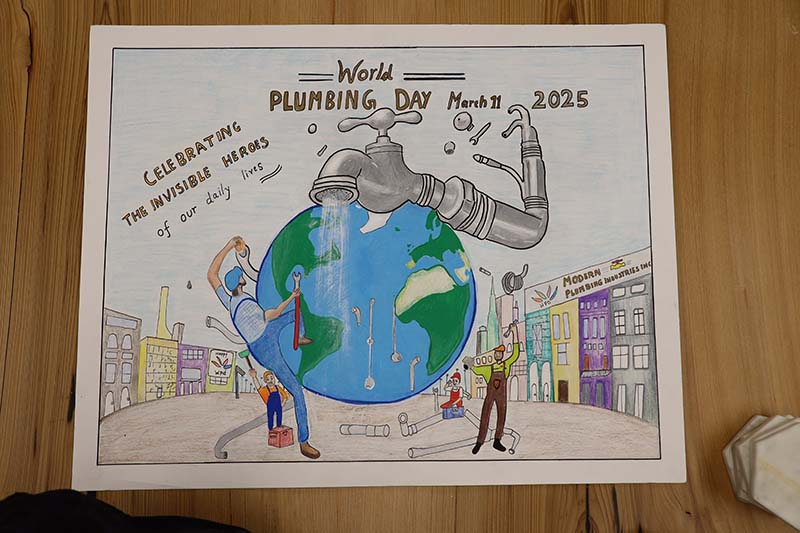 World
PLUMBING DAY March 11 2025
CELEBRATING
THE INVISIBLE HEROES
of our daily lives
MODERN
PLUMBING INDUSTRIES INC